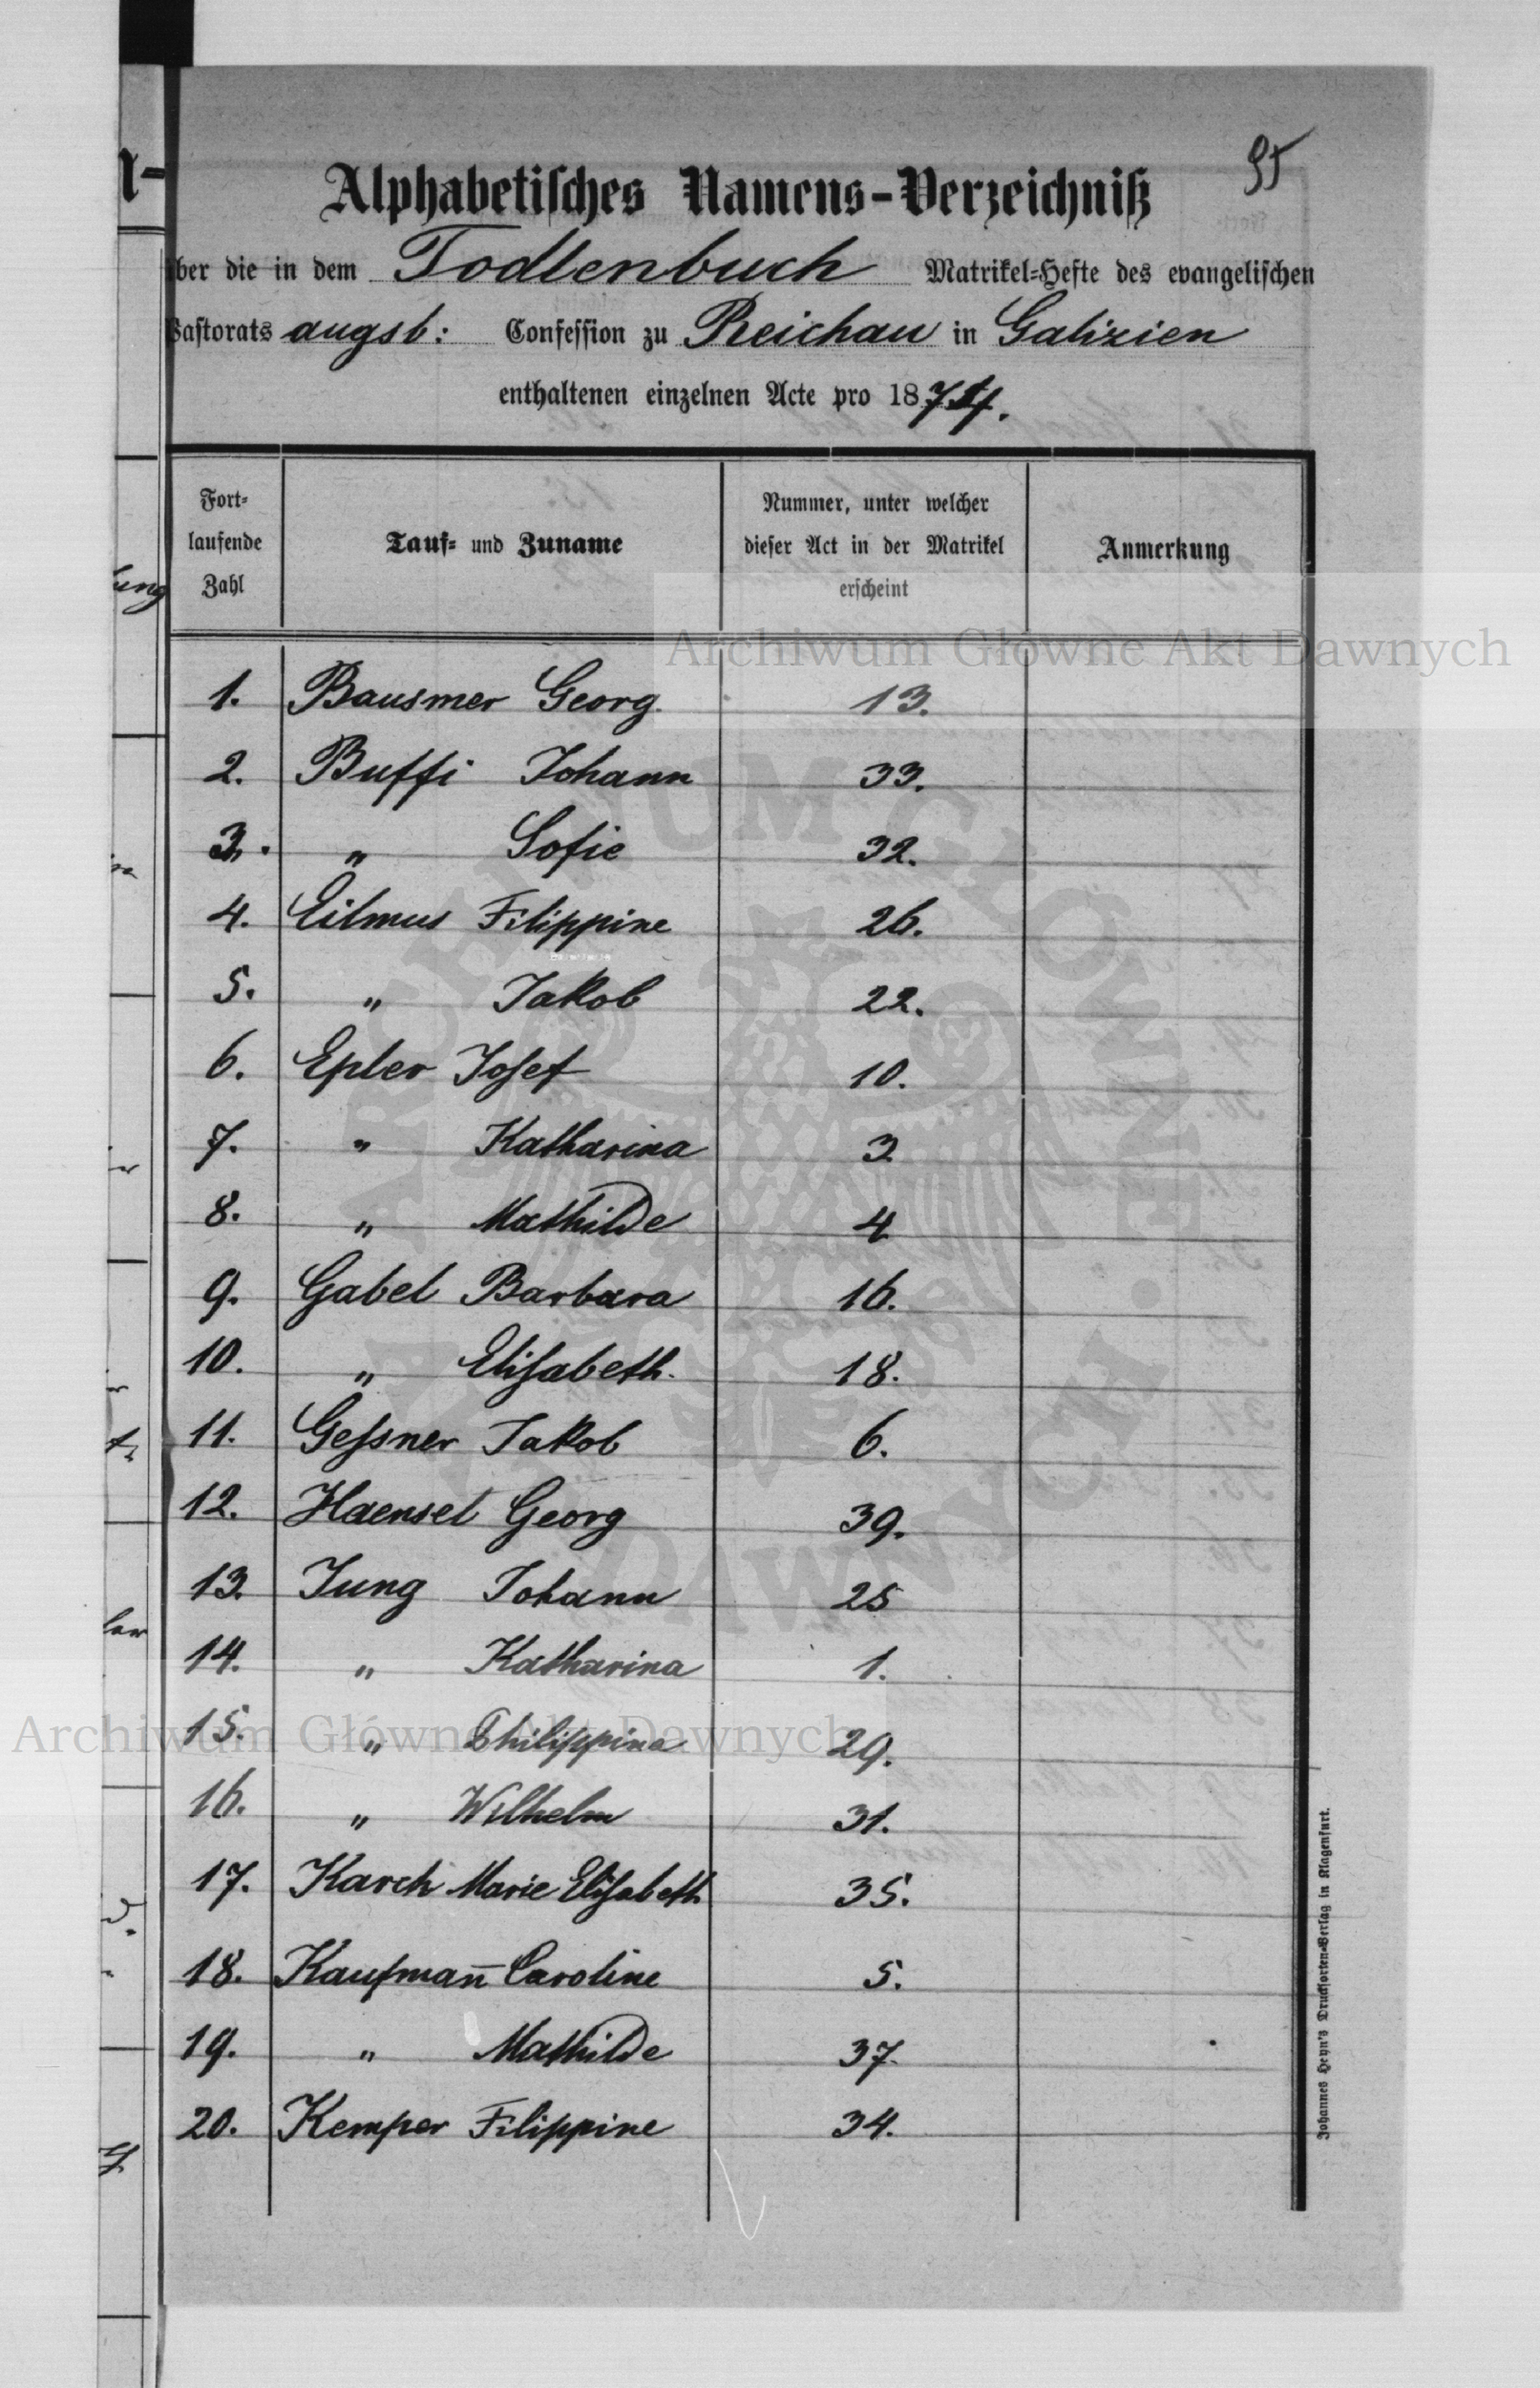 95
Alphabetisches Namens-Verzeichniß
ber die in dem Todtenbuch Matrikel-Hefte des evangelischen
Pastorats augsb: Confession zu Reichau in Galizien
enthaltenen einzelnen Acte pro 1874.
Fort-
laufende
Zahl
Tauf- und Zuname
Nummer, unter welcher
dieser Act in der Matrikel
erscheint
Anmerkung
Archiwum Główne Akt Dawnych
1. Bausmer Georg. 13.
2. Buffi Johann 33.
3. „ Sofie 32.
4. Eilmus Filippine 26.
5. „ Jakob 22.
6. Epler Josef 10.
7. „ Katharina 3
8. „ Mathilde 4
9. Gabel Barbara 16.
10. „ Elisabeth. 18.
11. Gessner Jakob 6.
12. Haensel Georg 39.
13. Jung Johann 25
14. „ Katharina 1.
15. „ Philippina 29.
Archiwum Główne Akt Dawnych
16. „ Wilhelm 31.
17. Karch Marie Elisabeth 35.
18. Kaufman̄ Caroline 5.
19. „ Mathilde 37.
20. Kemper Filippine 34.
Johannes Heyn's Drucksorten-Verlag in Klagenfurt.
ARCHIWUM GŁÓWNE AKT DAWNYCH